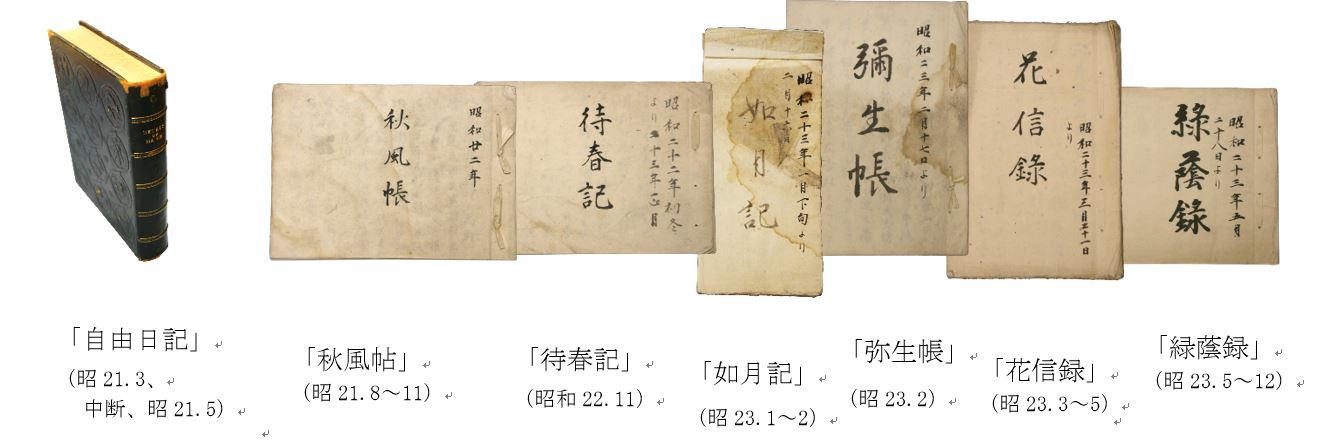 昭和廿二年
秋風帳
昭和二十二年初冬
より二十三年正月
待春記
昭和二十三年一月下旬より
二月十
如月記
昭和二三年二月十七日より
彌生帳
昭和二十三年三月三十一日
より
花信錄
昭和二十三年五月
二十八日より
綠蔭錄
「自由日記」
（昭 21.3、
中断、昭 21.5）
「秋風帖」
（昭 21.8～11）
「待春記」
（昭和 22.11）
「如月記」
（昭 23.1～2）
「弥生帳」
（昭 23.2）
「花信録」
（昭 23.3～5）
「緑蔭録」
（昭 23.5～12）